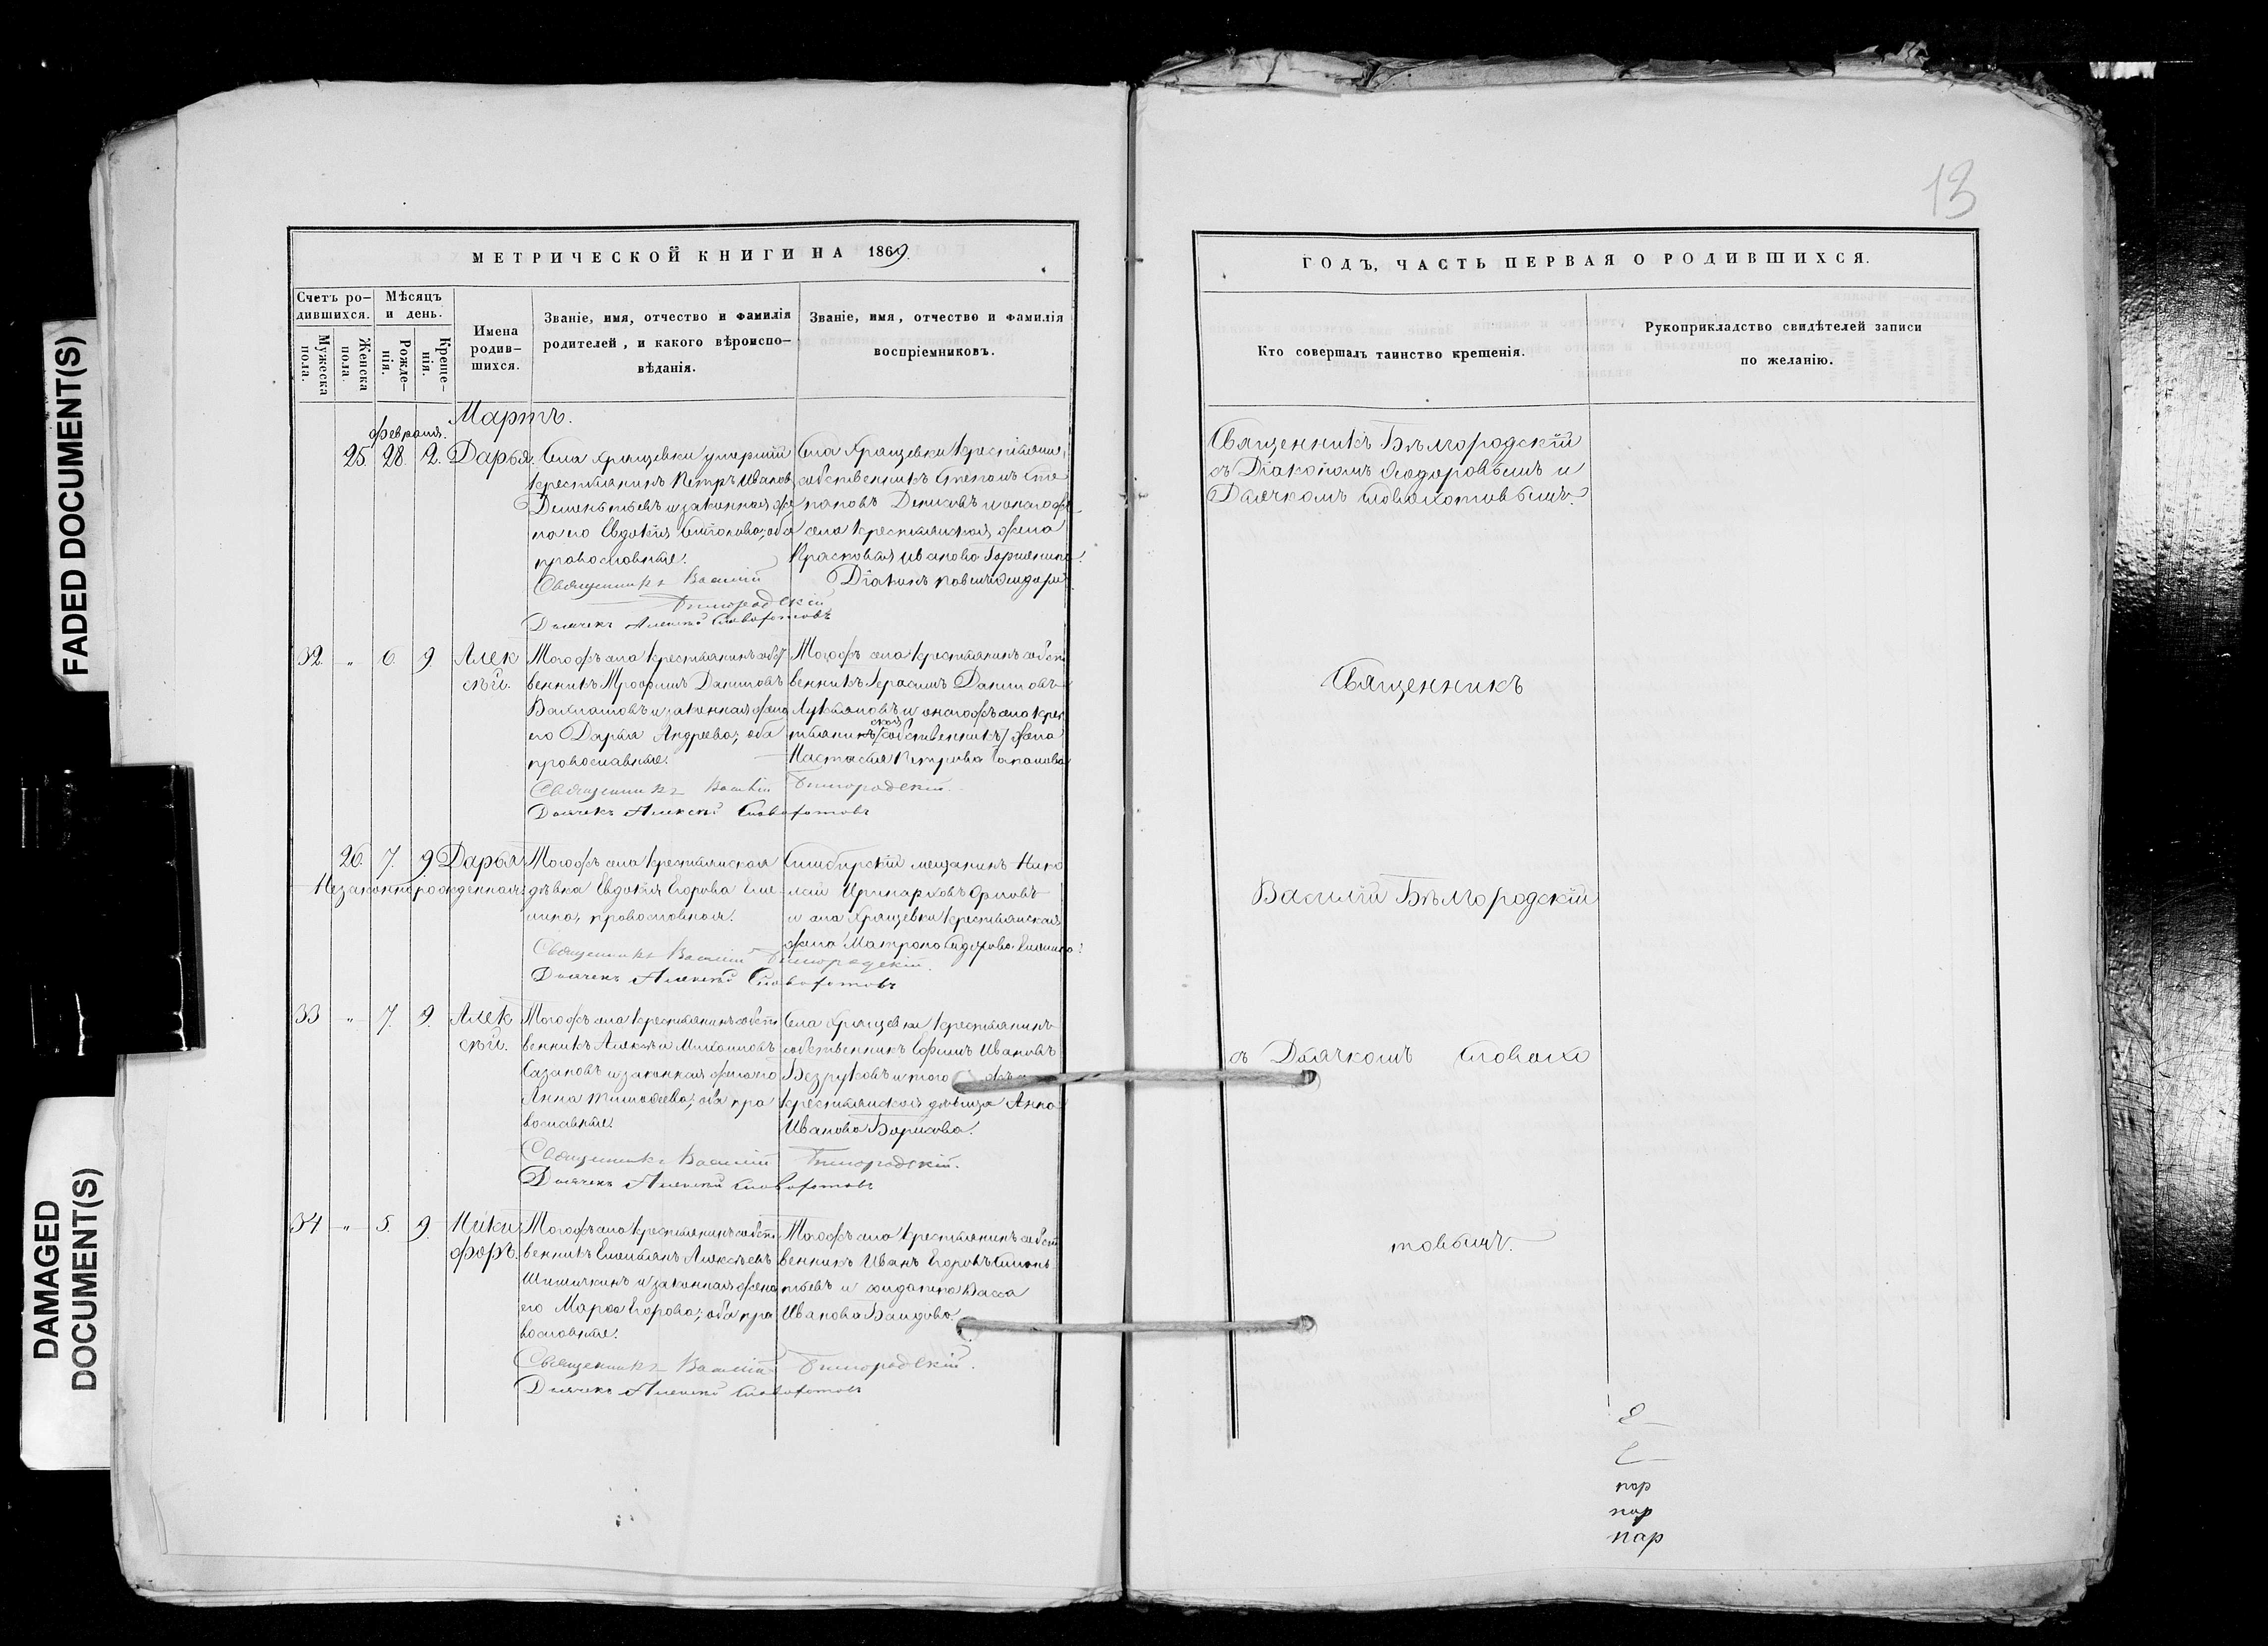 FADED DOCUMENT(S)
DAMAGED
DOCUMENT(S)
МЕТРИЧЕСКОЙ КНИГИ НА 1869.
Счетъ ро-
дившихся.
Мужеска
пола.
Женска
пола.
Мѣсяцъ
и день.
Рожде-
нія.
Креще-
нія.
Имена
родив-
шихся.
Званіе, имя, отчество и фамилія
родителей, и какого вѣроиспо-
вѣданія.
Званіе, имя, отчество и фамилія
воспріемниковъ.
Мартъ.
Февраля.
25. 28. 2. Дарья.
Села Хрящевки умершій
крестьянинъ Петръ Ивановъ
Дементьевъ и законная же
на его Евдокія; оба
православные.
Священникъ Василій
Бѣлгородскій
Дьячекъ Алексѣй Словохотовъ
Села Хрящевки крестьянинъ
собственникъ Степанъ Сте
пановъ Денисовъ и онаго же
села крестьянская жена
Прасковья Иванова
Діаконъ
32 " 6. 9. Алек
сѣй.
Того жъ села крестьянинъ собст
венникъ Трофимъ Даниловъ
и законная жена
его Дарья Андреева; оба
православные.
Священникъ Василій Бѣлгородскій.
Дьячекъ Алексѣй Словохотовъ
Того жъ села крестьянинъ собст
венникъ Герасимъ Даниловъ
Лукьяновъ и онаго жъ села крес
тьянинъ собственникъ жена
ская
Настасья Петрова
26. 7. 9 Дарья
Незаконнорожденная
Того жъ села крестьянская
дѣвка Евдокія Егорова Еме
лина, православная.
Священникъ Василій Бѣлгородскій.
Дьячекъ Алексѣй Словохотовъ
Симбирскій мещанинъ Нико
лай Иринарховъ Орловъ
и села Хрящевки крестьянская
жена Матрона Сидорова Емелина.
33 " 7. 9. Алек
сѣй.
Того жъ села крестьянинъ собст
венникъ Алексѣй Михайловъ
Сазановъ и законная жена его
Анна Тимофеева; оба пра
вославные.
Священникъ Василій Бѣлгородскій.
Дьячекъ Алексѣй Словохотовъ
Села Хрящевки крестьянинъ
собственникъ Ефимъ Ивановъ
Безруковъ и того
крестьянская дѣвица Анна
Иванова Борисова.
34 " 5. 9. Ники
форъ.
Того жъ села крестьянинъ собст
венникъ Емельянъ Алексѣевъ
Шишкинъ и законная жена
его Марфа Егорова; оба пра
вославные.
Священникъ Василій Бѣлгородскій.
Дьячекъ Алексѣй Словохотовъ
Того жъ села крестьянинъ собст
венникъ Иванъ Егоровъ
и солдатка Васса
Иванова
13
ГОДЪ, ЧАСТЬ ПЕРВАЯ О РОДИВШИХСЯ.
Кто совершалъ таинство крещенія.
Рукоприкладство свидѣтелей записи
по желанію.
Священникъ Бѣлгородскій
съ Діакономъ Ѳеодоровымъ и
Дьячкомъ Словохотовымъ.
Священникъ
Василій Бѣлгородскій
съ Дьячкомъ Словохо
товымъ.
пар
пар
пар